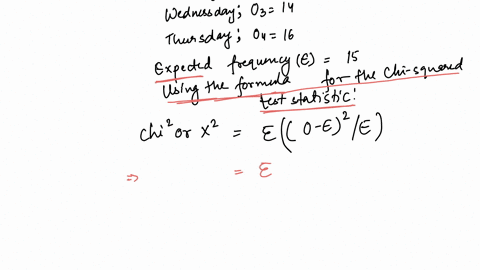 Wednesday; O3 = 14
Thursday; O4 = 16
Expected frequency (E) = 15
Using the formula for the Chi-squared
test statistic:
Chi² or X² = Σ((O-E)²/E)
⇒ = Σ